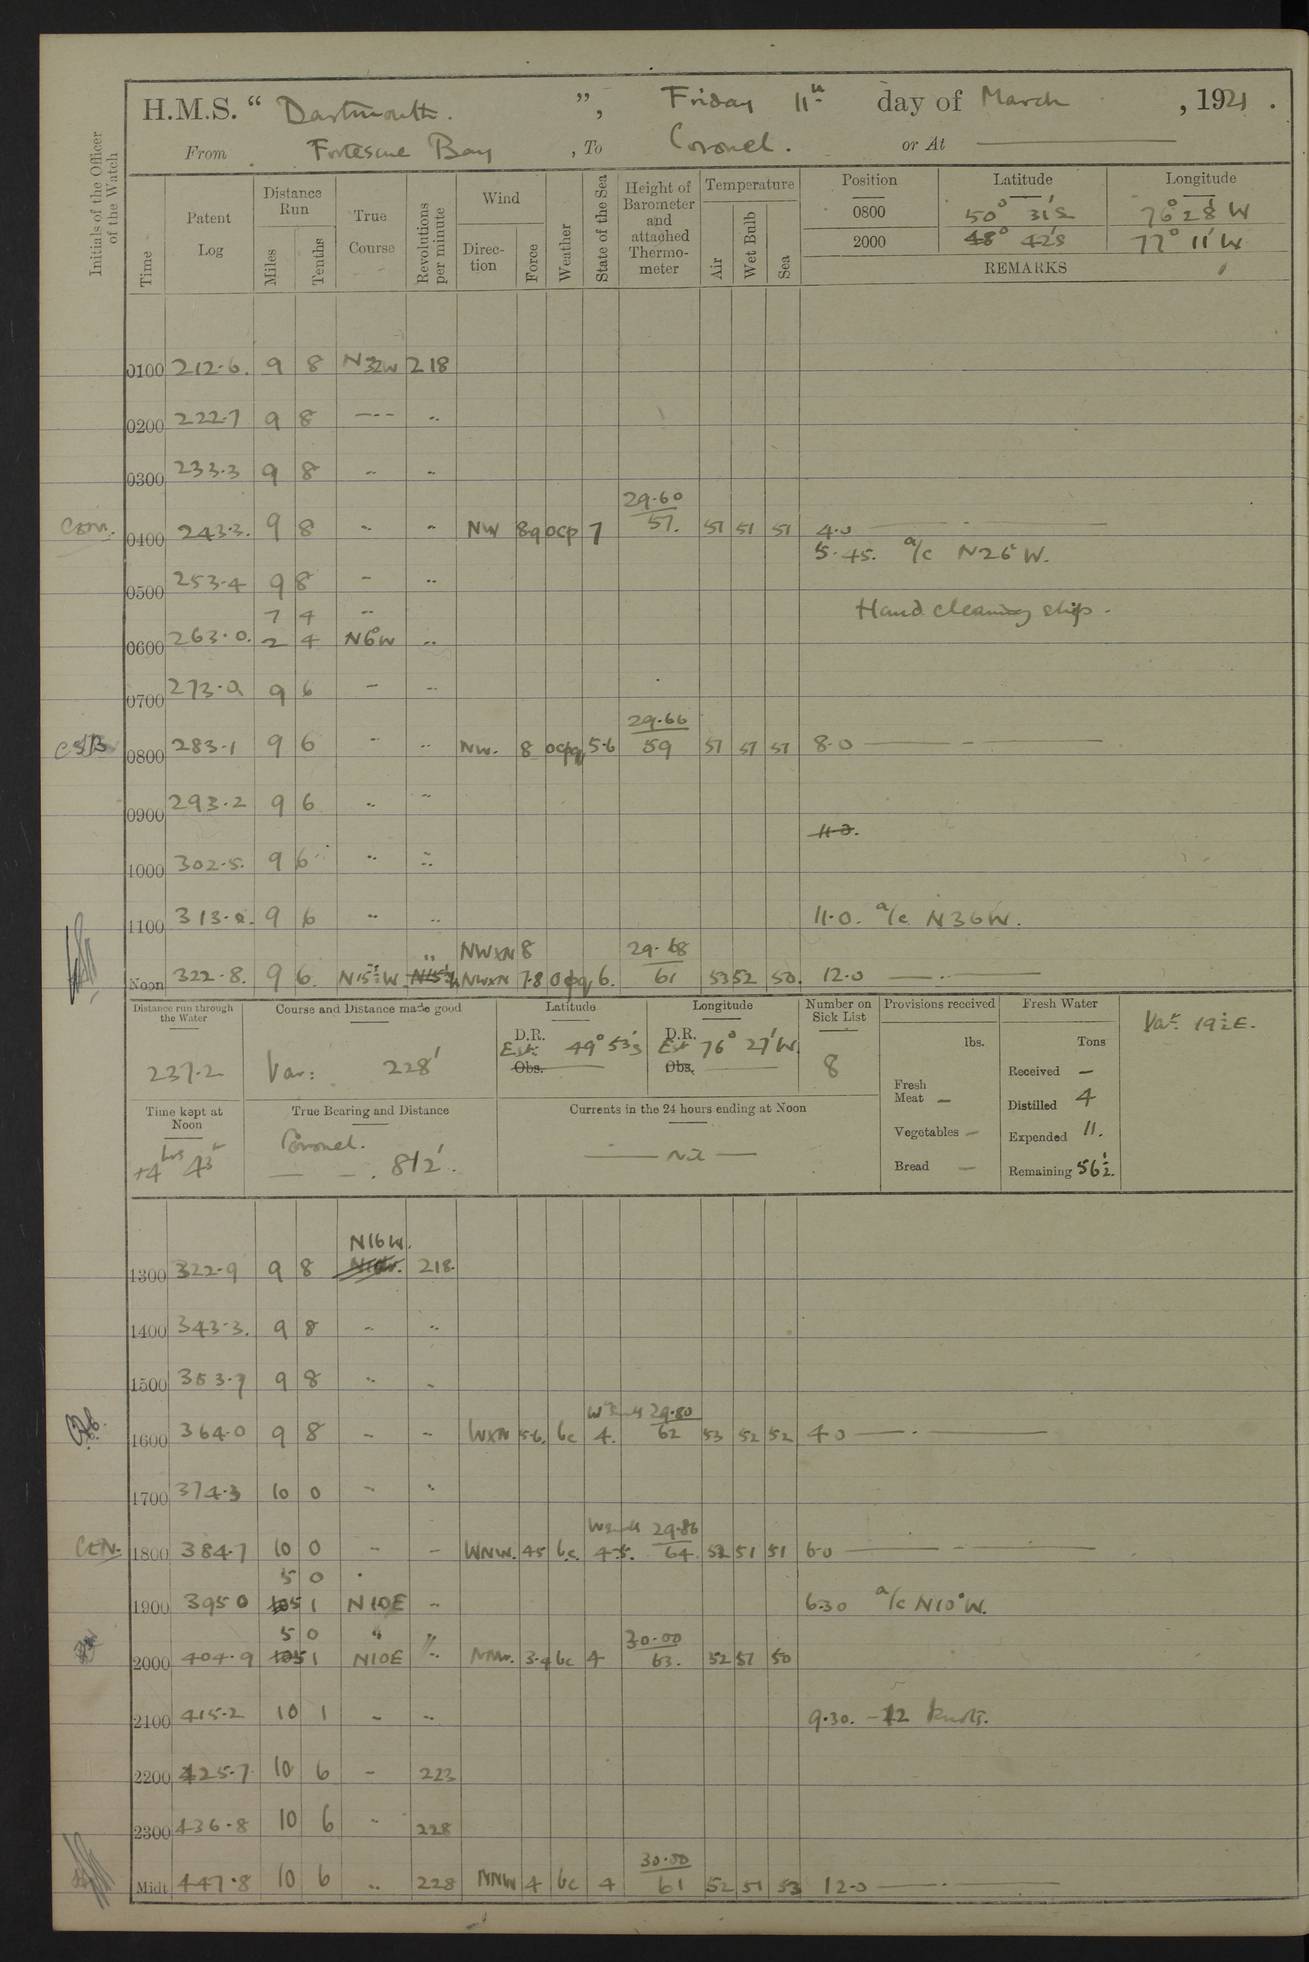 H.M.S. “ Dartmouth. ”, Friday 11th day of March , 1921 .
From Fortescue Bay , To Coronel. or At ——
Initials of the Officer of the Watch
Time
Patent Log
Distance Run
Miles
Tenths
True Course
Revolutions per minute
Wind
Direc-tion
Force
Weather
State of the Sea
Height of Barometer and attached Thermo-meter
Temperature
Air
Wet Bulb
Sea
Position Latitude Longitude
0800 50° 31'S 76° 28' W
2000 48° 42'S 77° 11' W
REMARKS
0100 212.6. 9 8 N32W 218
0200 222.7 9 8 --- ..
0300 233.3 9 8 .. ..
29.60
0400 243.3. 9 8 .. .. NW 8.9 ocp 7 57. 51 51 51 4.0 ——
5.45. a/c N26°W.
0500 253.4 9 8 - ..
Hand cleaning ship.
7 4 ..
0600 263.0. 2 4 N6°W ..
0700 273.0 9 6 - ..
29.66
0800 283.1 9 6 .. .. NW. 8 ocpq 5.6 59 51 51 51 8.0 ——
0900 293.2 9 6 .. ..
11.0.
1000 302.5. 9 6 .. ..
1100 313.0. 9 6 .. .. 11.0. a/c N36W.
.. NWxN 8 29.68
Noon 322.8. 9 6. N15½W. N15½W NWxN 7.8 opq 6. 61 53 52 50. 12.0 ——
Distance run through the Water
237.2
Course and Distance made good
Var: 228'
Latitude
D.R.
Est: 49° 53'S
Obs.
Longitude
D.R.
Est 76° 27'W.
Obs.
Number on Sick List
8
Provisions received
lbs.
Fresh Meat —
Vegetables —
Bread —
Fresh Water
Tons
Received —
Distilled 4
Expended 11.
Remaining 56½.
Varn 19½E.
Time kept at Noon
+4 hrs 43
True Bearing and Distance
Coronel.
— — . 812'.
Currents in the 24 hours ending at Noon
—— Nil ——
N16W.
1300 322.9 9 8 218.
1400 343.3. 9 8 .. ..
1500 353.7 9 8 .. ..
29.80
1600 364.0 9 8 - - WxN 5.6. bc 4. 62 53 52 52 4.0 ——
1700 374.3 10 0 - ..
29.86
CEN. 1800 384.7 10 0 - - WNW. 45 b.c. 4.5. 64. 52 51 51 6.0 ——
5 0 .
1900 395 0 5 1 N10E .. 6.30 a/c N10°W.
5 0 " "
30.00
2000 404.9 5 1 N10E .. NNW. 3.4 bc 4 63. 52 51 50
2100 415.2 10 1 - .. 9.30. - 12 knots.
2200 425.7 10 6 - 223
2300 436.8 10 6 .. 228
30.00
Midt 447.8 10 6 .. 228 NNW 4 bc 4 61 52 51 53 12.0 ——